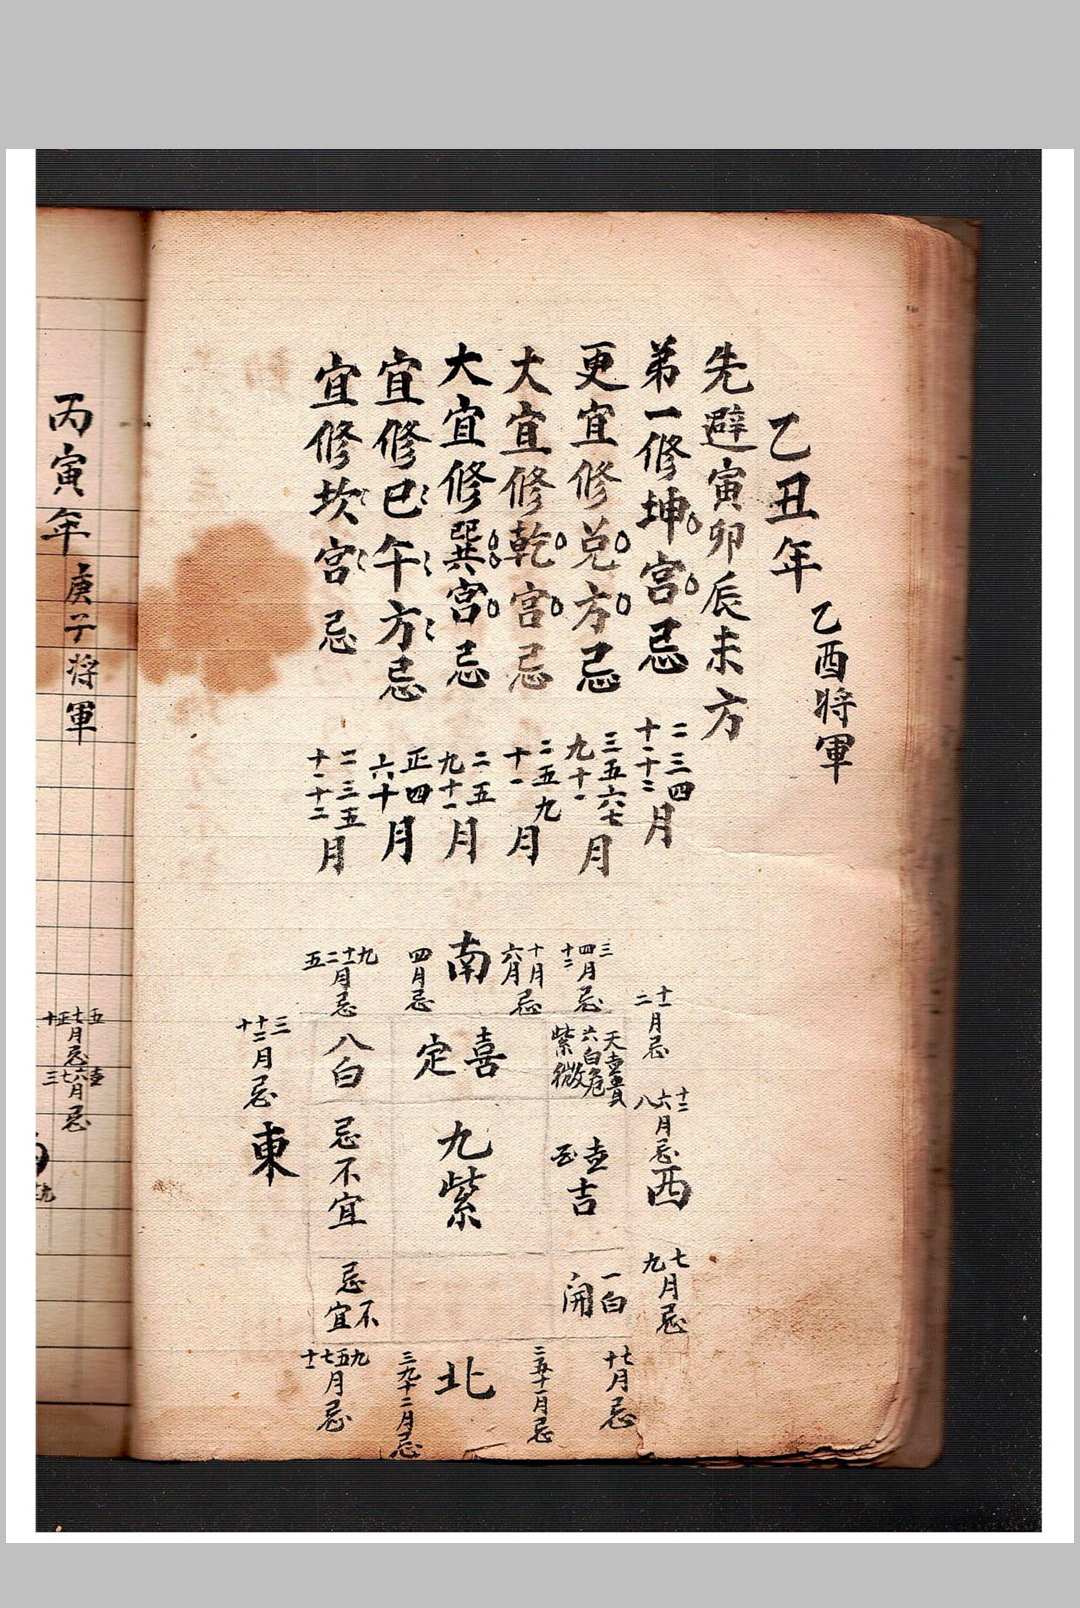 乙丑年 乙酉將軍
先避寅卯辰未方
弟一修坤宮忌 二三四十一十二月
更宜修兑方忌 三五六七九十一月
大宜修乾宮忌 二五九十一月
大宜修巽宮忌 二五九十一月
宜修巳午方忌 正四六十月
宜修坎宮忌 二三五十一十二月
十一二月忌
十二六八月忌
西
七九月忌
三四十二月忌
十月六月忌
南
四月忌
九十二五月忌
三十二十月忌
東
天
六白危
紫微
喜
定
八白
吉
九紫
忌不宜
一白
開
忌不宜
七十月忌
二五十一月忌
北
三九十二月忌
九五七十一月忌
丙寅年 庚子將軍
五七正十月忌
六七三月忌